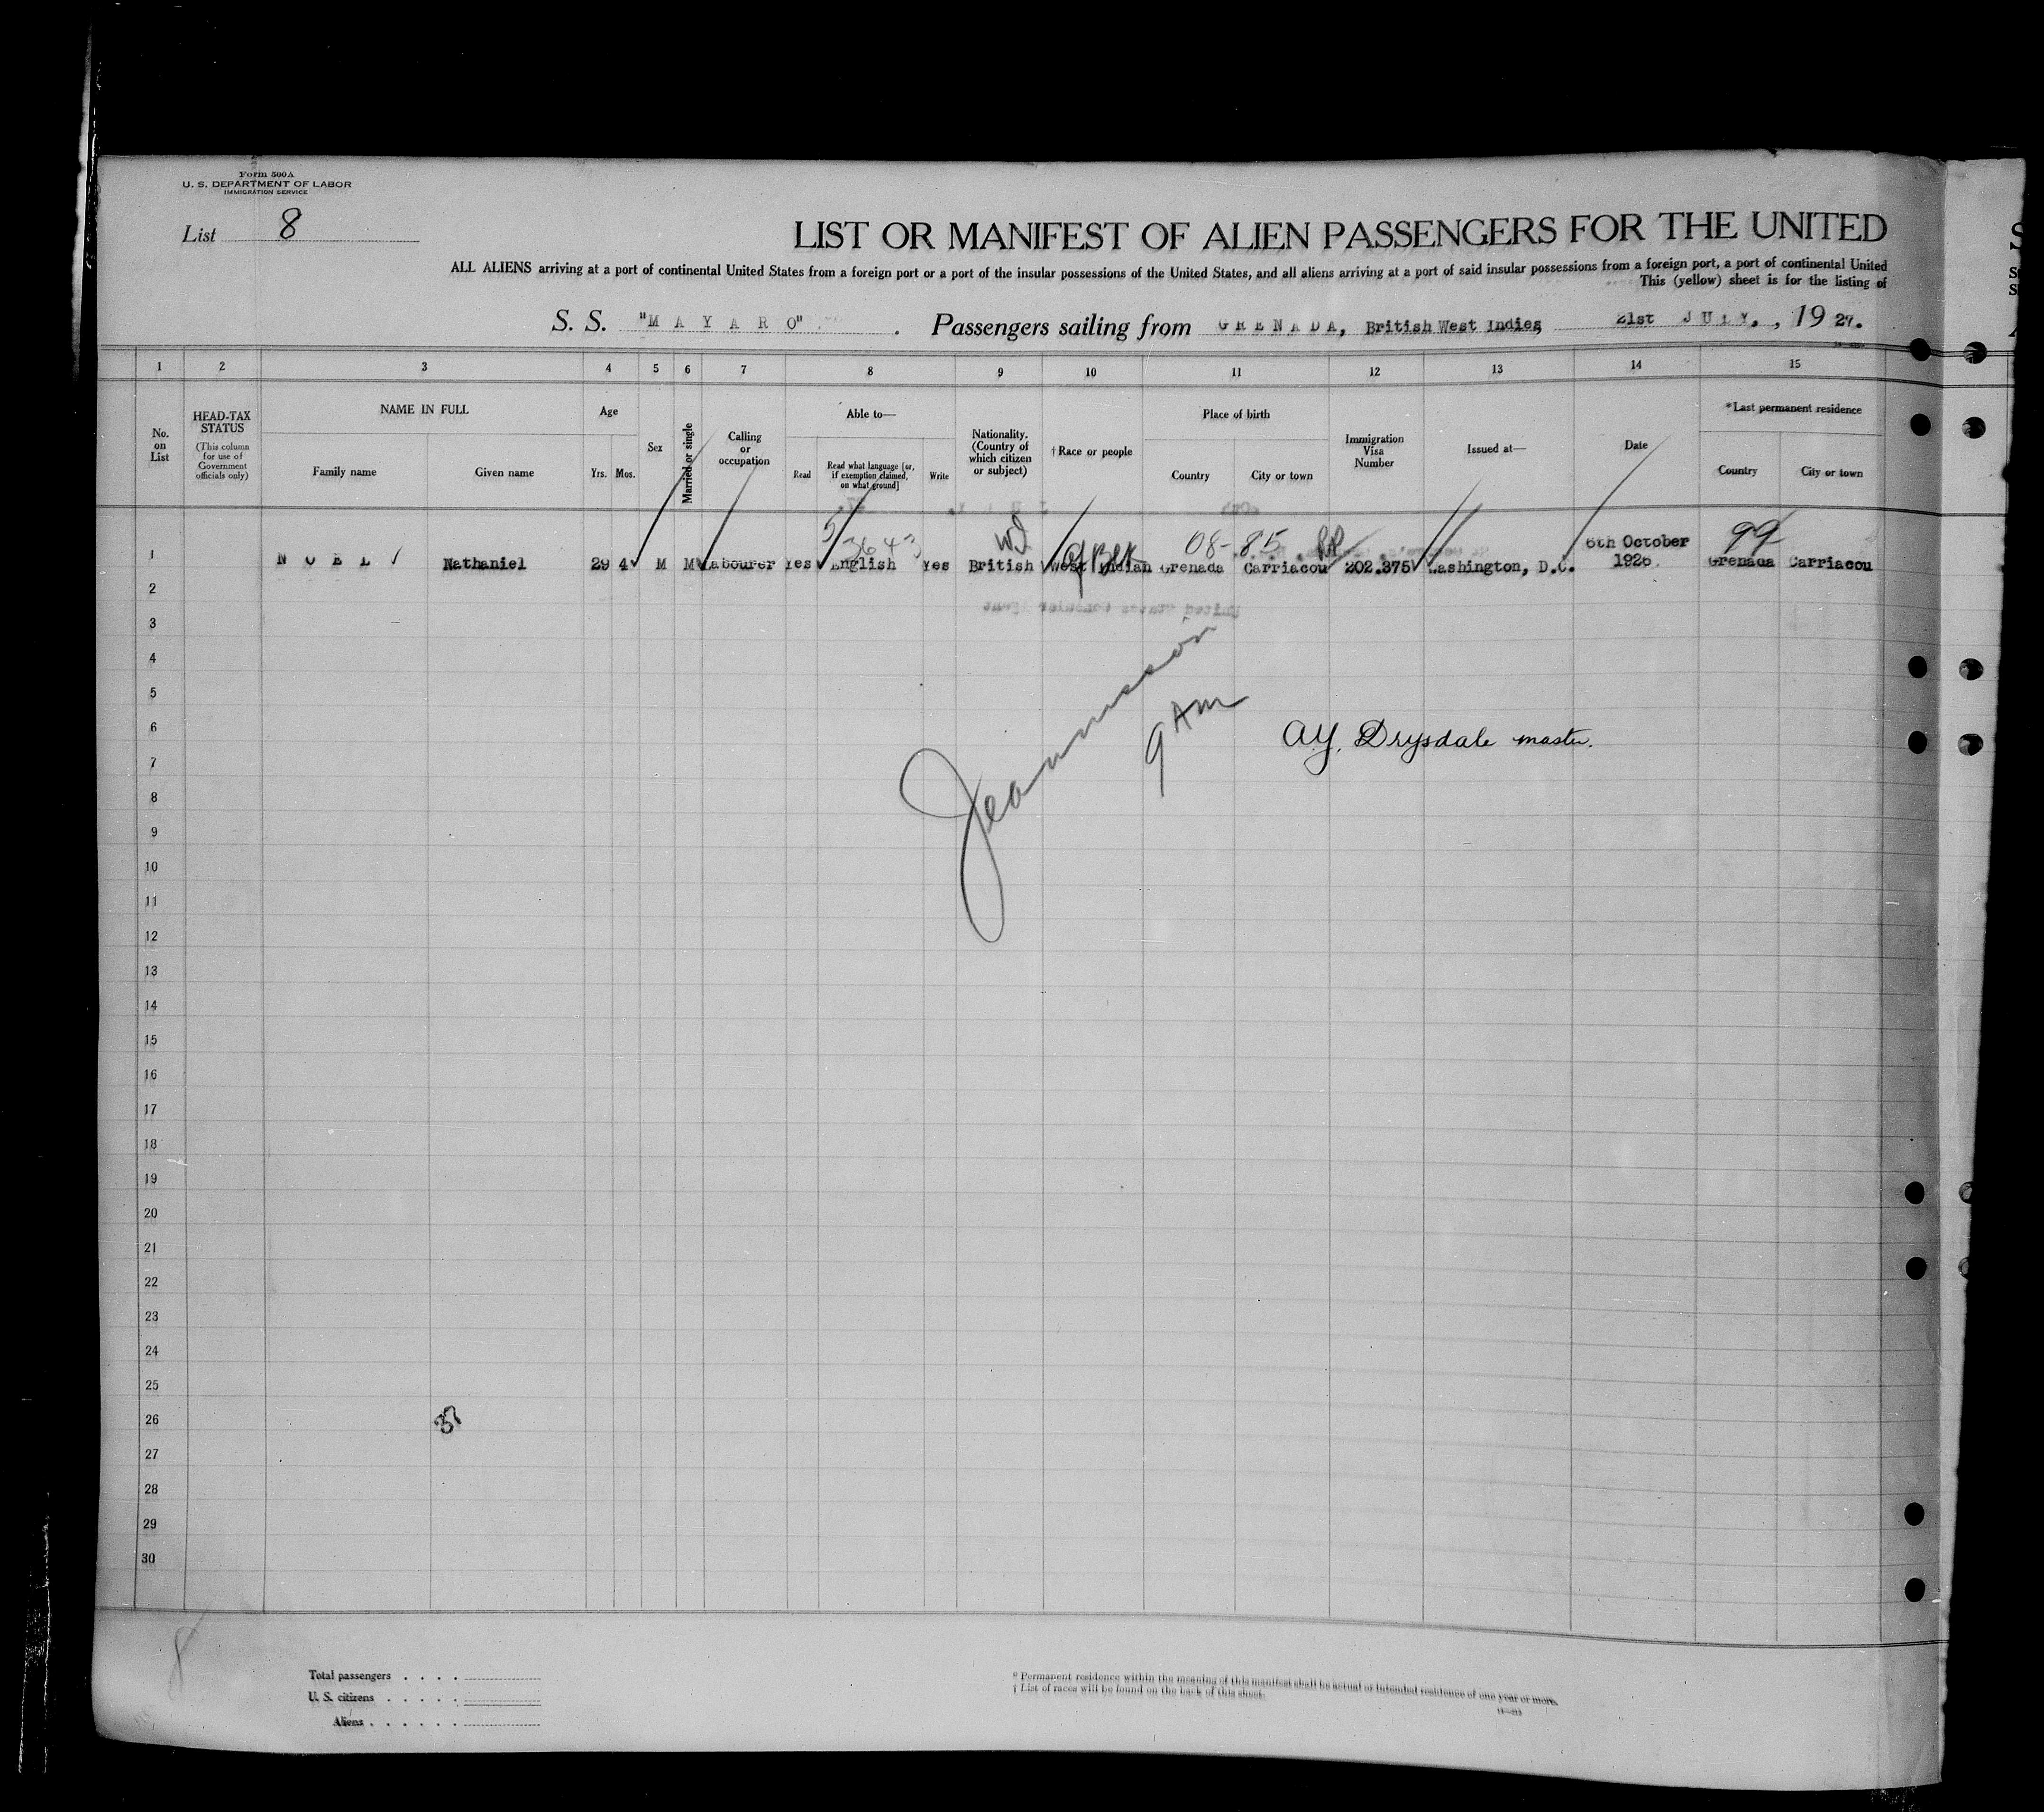 Form 500A
U. S. DEPARTMENT OF LABOR
IMMIGRATION SERVICE
List 8
LIST OR MANIFEST OF ALIEN PASSENGERS FOR THE UNITED
ALL ALIENS arriving at a port of continental United States from a foreign port or a port of the insular possessions of the United States, and all aliens arriving at a port of said insular possessions from a foreign port, a port of continental United
This (yellow) sheet is for the listing of
S. S. "M A Y A R O" . Passengers sailing from G R E N A D A, British West Indies, 21st J U L Y. , 19 27.
1 2 3 4 5 6 7 8 9 10 11 12 13 14 15
No. on List
HEAD-TAX STATUS
(This column for use of Government officials only)
NAME IN FULL
Family name Given name
Age
Yrs. Mos.
Sex
Married or single
Calling or occupation
Able to—
Read
Read what language [or, if exemption claimed, on what ground]
Write
Nationality. (Country of which citizen or subject)
†Race or people
Place of birth
Country City or town
Immigration Visa Number
Issued at—
Date
*Last permanent residence
Country City or town
3643 WI 08-85 99
1 N O E L Nathaniel 29 4 M M Labourer Yes English Yes British West Indian Grenada Carriacou 202.375 Washington, D.C. 6th October 1926 Grenada Carriacou
2
3
4
5
6
7
8
9
10
11
12
13
14
15
16
17
18
19
20
21
22
23
24
25
26
27
28
29
30
9 AM
A.Y. Drysdale master.
8
Total passengers . . . .
U. S. citizens . . . . .
Aliens . . . . . .
* Permanent residence within the meaning of this manifest shall be actual or intended residence of one year or more.
† List of races will be found on the back of this sheet.